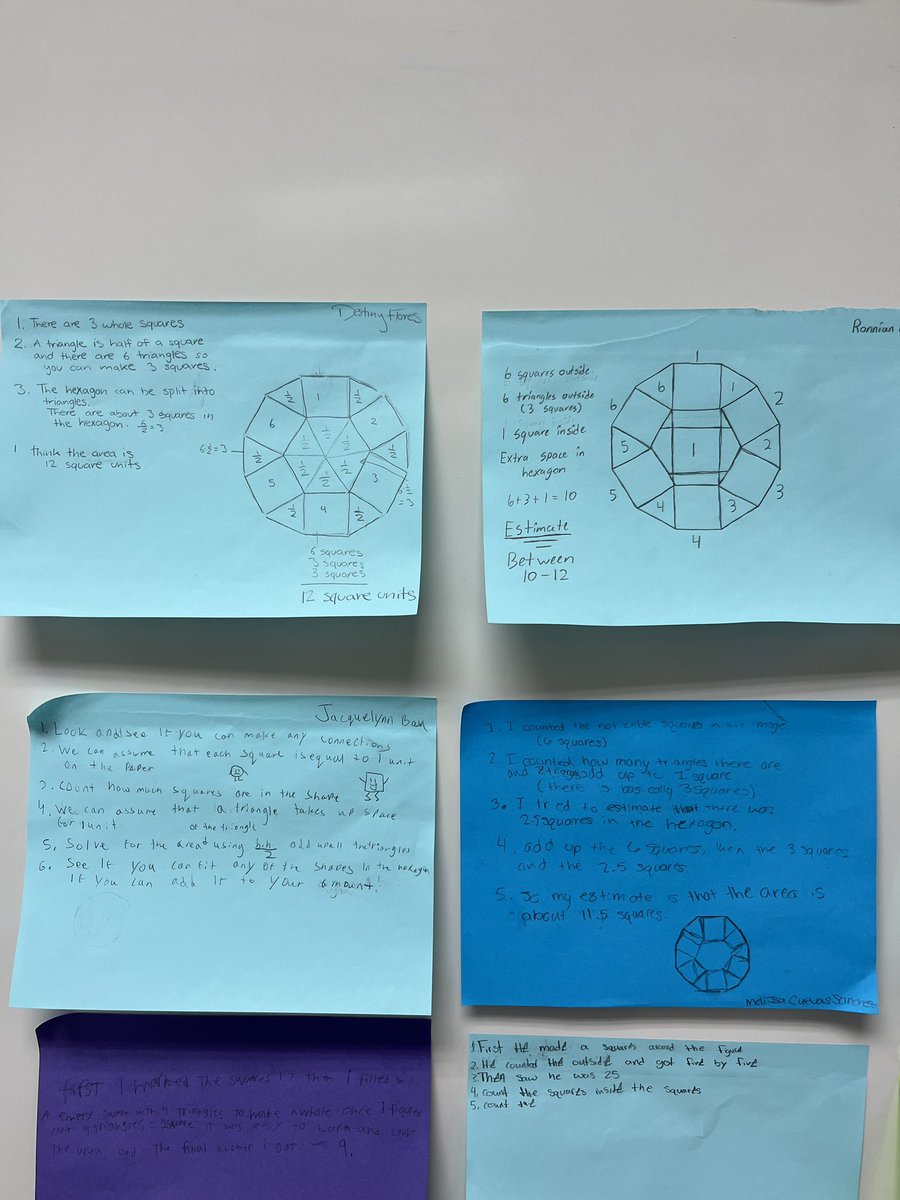 Destiny Flores
1. There are 3 whole squares
2. A triangle is half of a square
and there are 6 triangles so
you can make 3 squares.
3. The hexagon can be split into
triangles.
There are about 3 squares in
the hexagon. 6/2=3
I think the area is
12 square units
1/2 1 1/2
6 2
1/2 1/2
6·1/2=3 1/2 1/2 1/2 1/2
1/2 1/2
5 3
6·1/2
=3
1/2 4 1/2
6 squares
3 squares
3 squares
12 square units
Ronnian
6 squares outside
6 triangles outside
(3 squares)
1 Square inside
Extra space in
hexagon
6+3+1=10
Estimate
Between
10-12
1
6 1
6 2
5 1 2
5 4 3 3
4
Jacquelynn
1. Look and see If you can make any connections
2. We can assume that each square is equal to 1 unit
on the paper
3. Count how much squares are in the shape
4. We can assume that a triangle takes up space
for 1 unit.
of the triangle
5. Solve for the area using b·h/2 add up all the triangles
6. See If you can fit any of the shapes in the hexagon
If you can add it to your amount!
1. I counted the squares in the image
(6 squares)
2. I counted how many triangles there are
and add up to 1 square
(there is basically 3 squares)
3. I tried to estimate that there was
2.5 squares in the hexagon.
4. add up the 6 squares, then the 3 squares
and the 2.5 squares.
5. So my estimate is that the area is
about 11.5 squares.
Melissa Cuevas
first I marked the squares Then I filled in
A empty square with 4 triangles to make a whole once I figured
out 4 triangles = square it was easy to work and count
the area and The final answer I got was 9.
1. First He made a squares around the figure
2. He counted the outside and got five by five
3. Then saw he was 25
4. count the squares inside the squares
5. count the